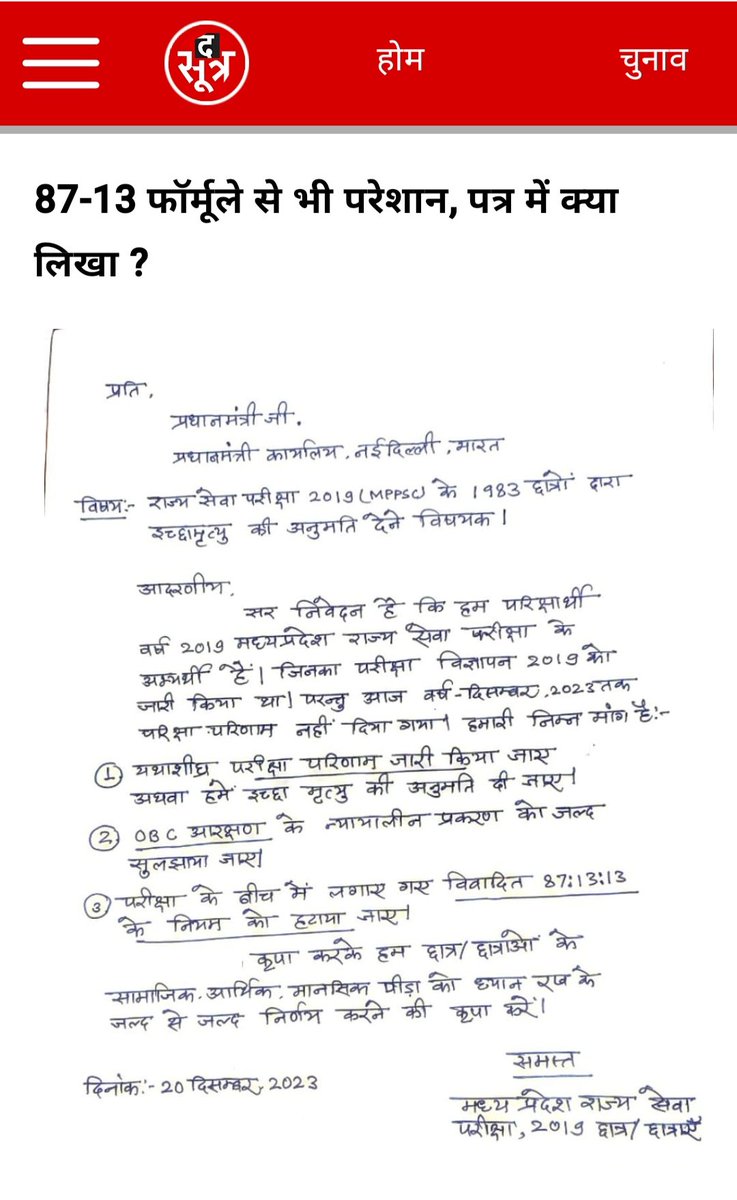 द सूत्र
होम
चुनाव
87-13 फॉर्मूले से भी परेशान, पत्र में क्या
लिखा ?
प्रति,
प्रधानमंत्री जी.
प्रधानमंत्री कार्यालय, नई दिल्ली, भारत
विषय:- राज्य सेवा परीक्षा 2019 (MPPSC) के 1983 छात्रों द्वारा
इच्छामृत्यु की अनुमति देने विषयक।
आदरणीय,
सर निवेदन है कि हम परिक्षार्थी
वर्ष 2019 मध्यप्रदेश राज्य सेवा परीक्षा के
अभ्यर्थी है। जिनका परीक्षा विज्ञापन 2019 को
जारी किया था। परन्तु आज वर्ष-दिसम्बर, 2023 तक
परिक्षा परिणाम नहीं दिया गया। हमारी निम्न मांग है:-
① यथाशीघ्र परीक्षा परिणाम जारी किया जाए
अथवा हमें इच्छा मृत्यु की अनुमति दी जाए।
② OBC आरक्षण के न्यायालीन प्रकरण को जल्द
सुलझाया जाए।
③ परीक्षा के बीच में लगाए गए विवादित 87:13:13
के नियम को हटाया जाए।
कृपा करके हम छात्र/छात्राओं के
सामाजिक, आर्थिक, मानसिक पीड़ा को ध्यान रख के
जल्द से जल्द निर्णय करने की कृपा करें।
समस्त
दिनांक:- 20 दिसम्बर, 2023
मध्य प्रदेश राज्य सेवा
परीक्षा, 2019 छात्र/छात्राएँ